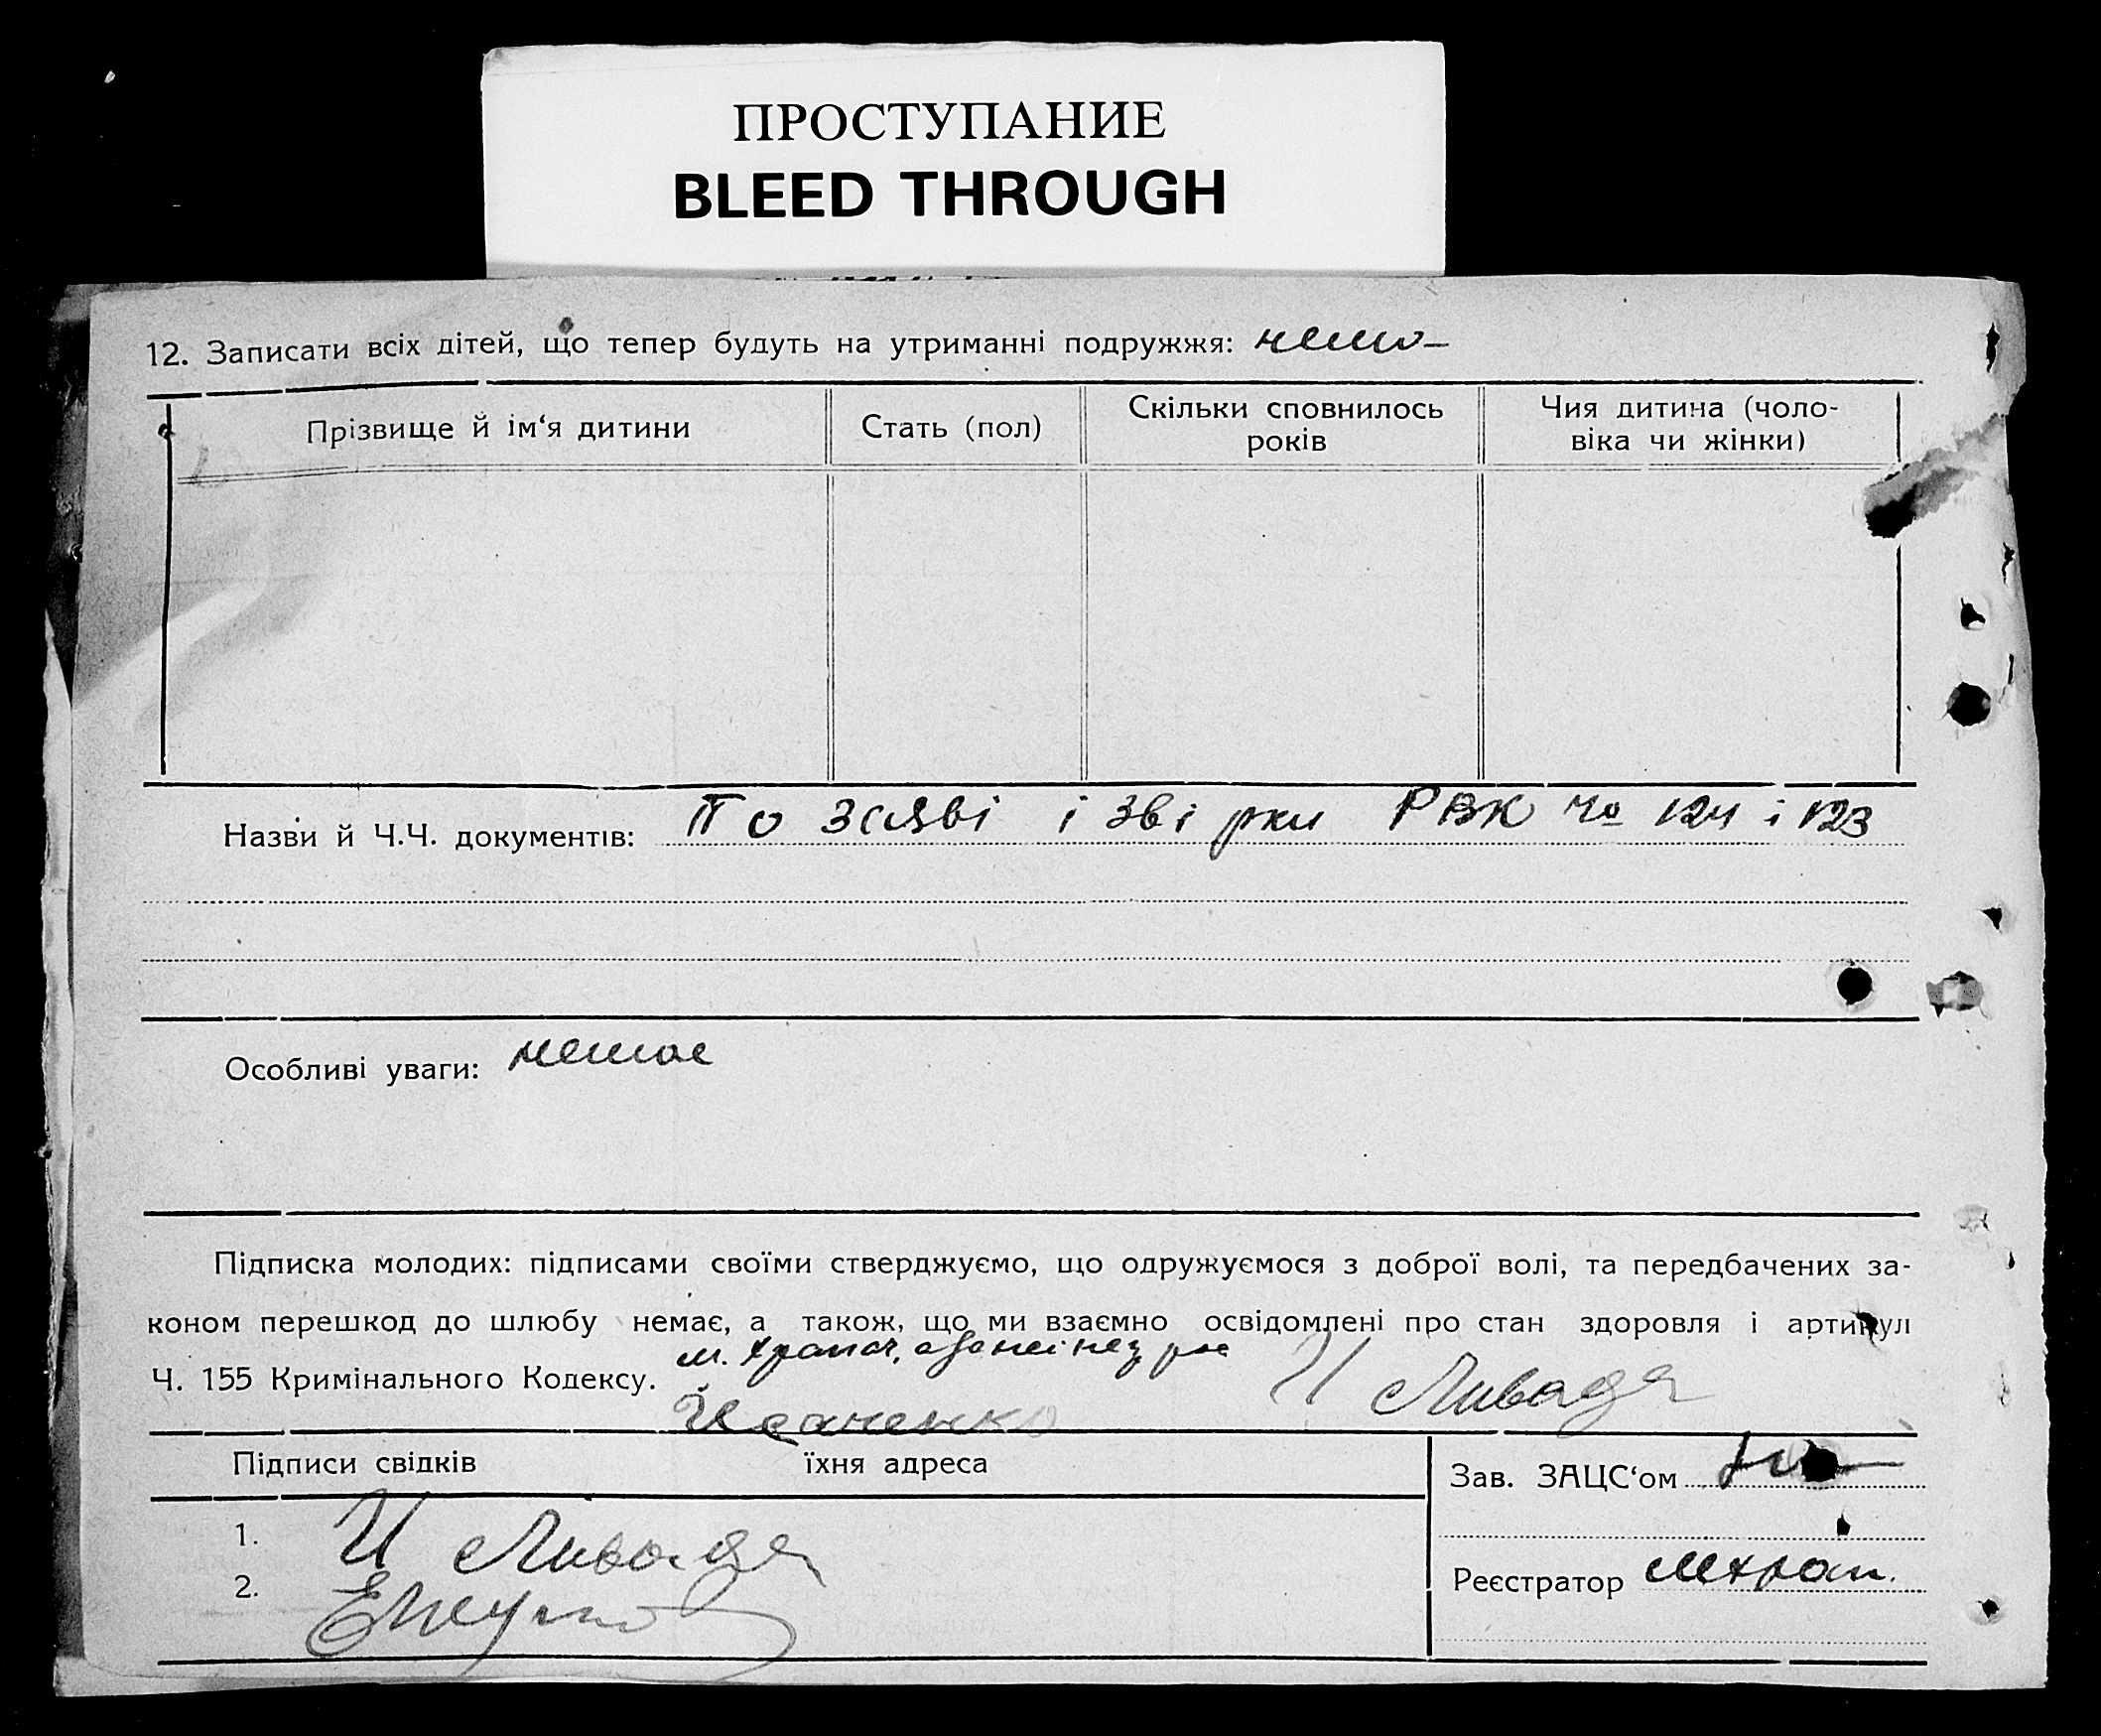 ПРОСТУПАНИЕ
BLEED THROUGH
12. Записати всіх дітей, що тепер будуть на утриманні подружжя:
Прізвище й ім‘я дитини
Стать (пол)
Скільки сповнилось
років
Чия дитина (чоло-
віка чи жінки)
Назви й Ч.Ч. документів: По заяві і звірки РВК № 124 і 123
Особливі уваги: немає
Підписка молодих: підписами своїми стверджуємо, що одружуємося з доброї волі, та передбачених за-
коном перешкод до шлюбу немає, а також, що ми взаємно освідомлені про стан здоровля і артикул
Ч. 155 Кримінального Кодексу. И Ливада
Підписи свідків
їхня адреса
Зав. ЗАЦС‘ом
1. И Ливада
2.
Реєстратор